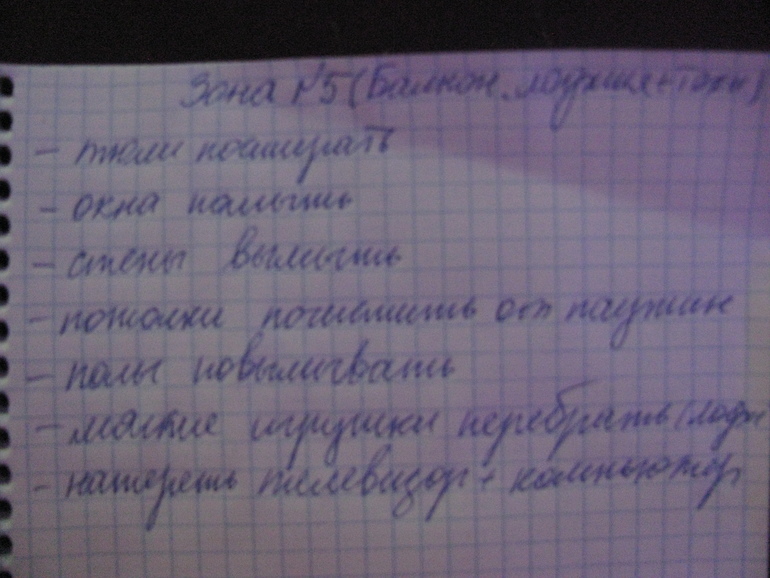 Зона №5 (Балкон, лоджия+
- тюли постирать
- окна помыть
- стены вымыть
- потолки почистить от паутин
- полы повымывать
- мягкие игрушки перебрать (лодж
- натереть телевизор + компьютер